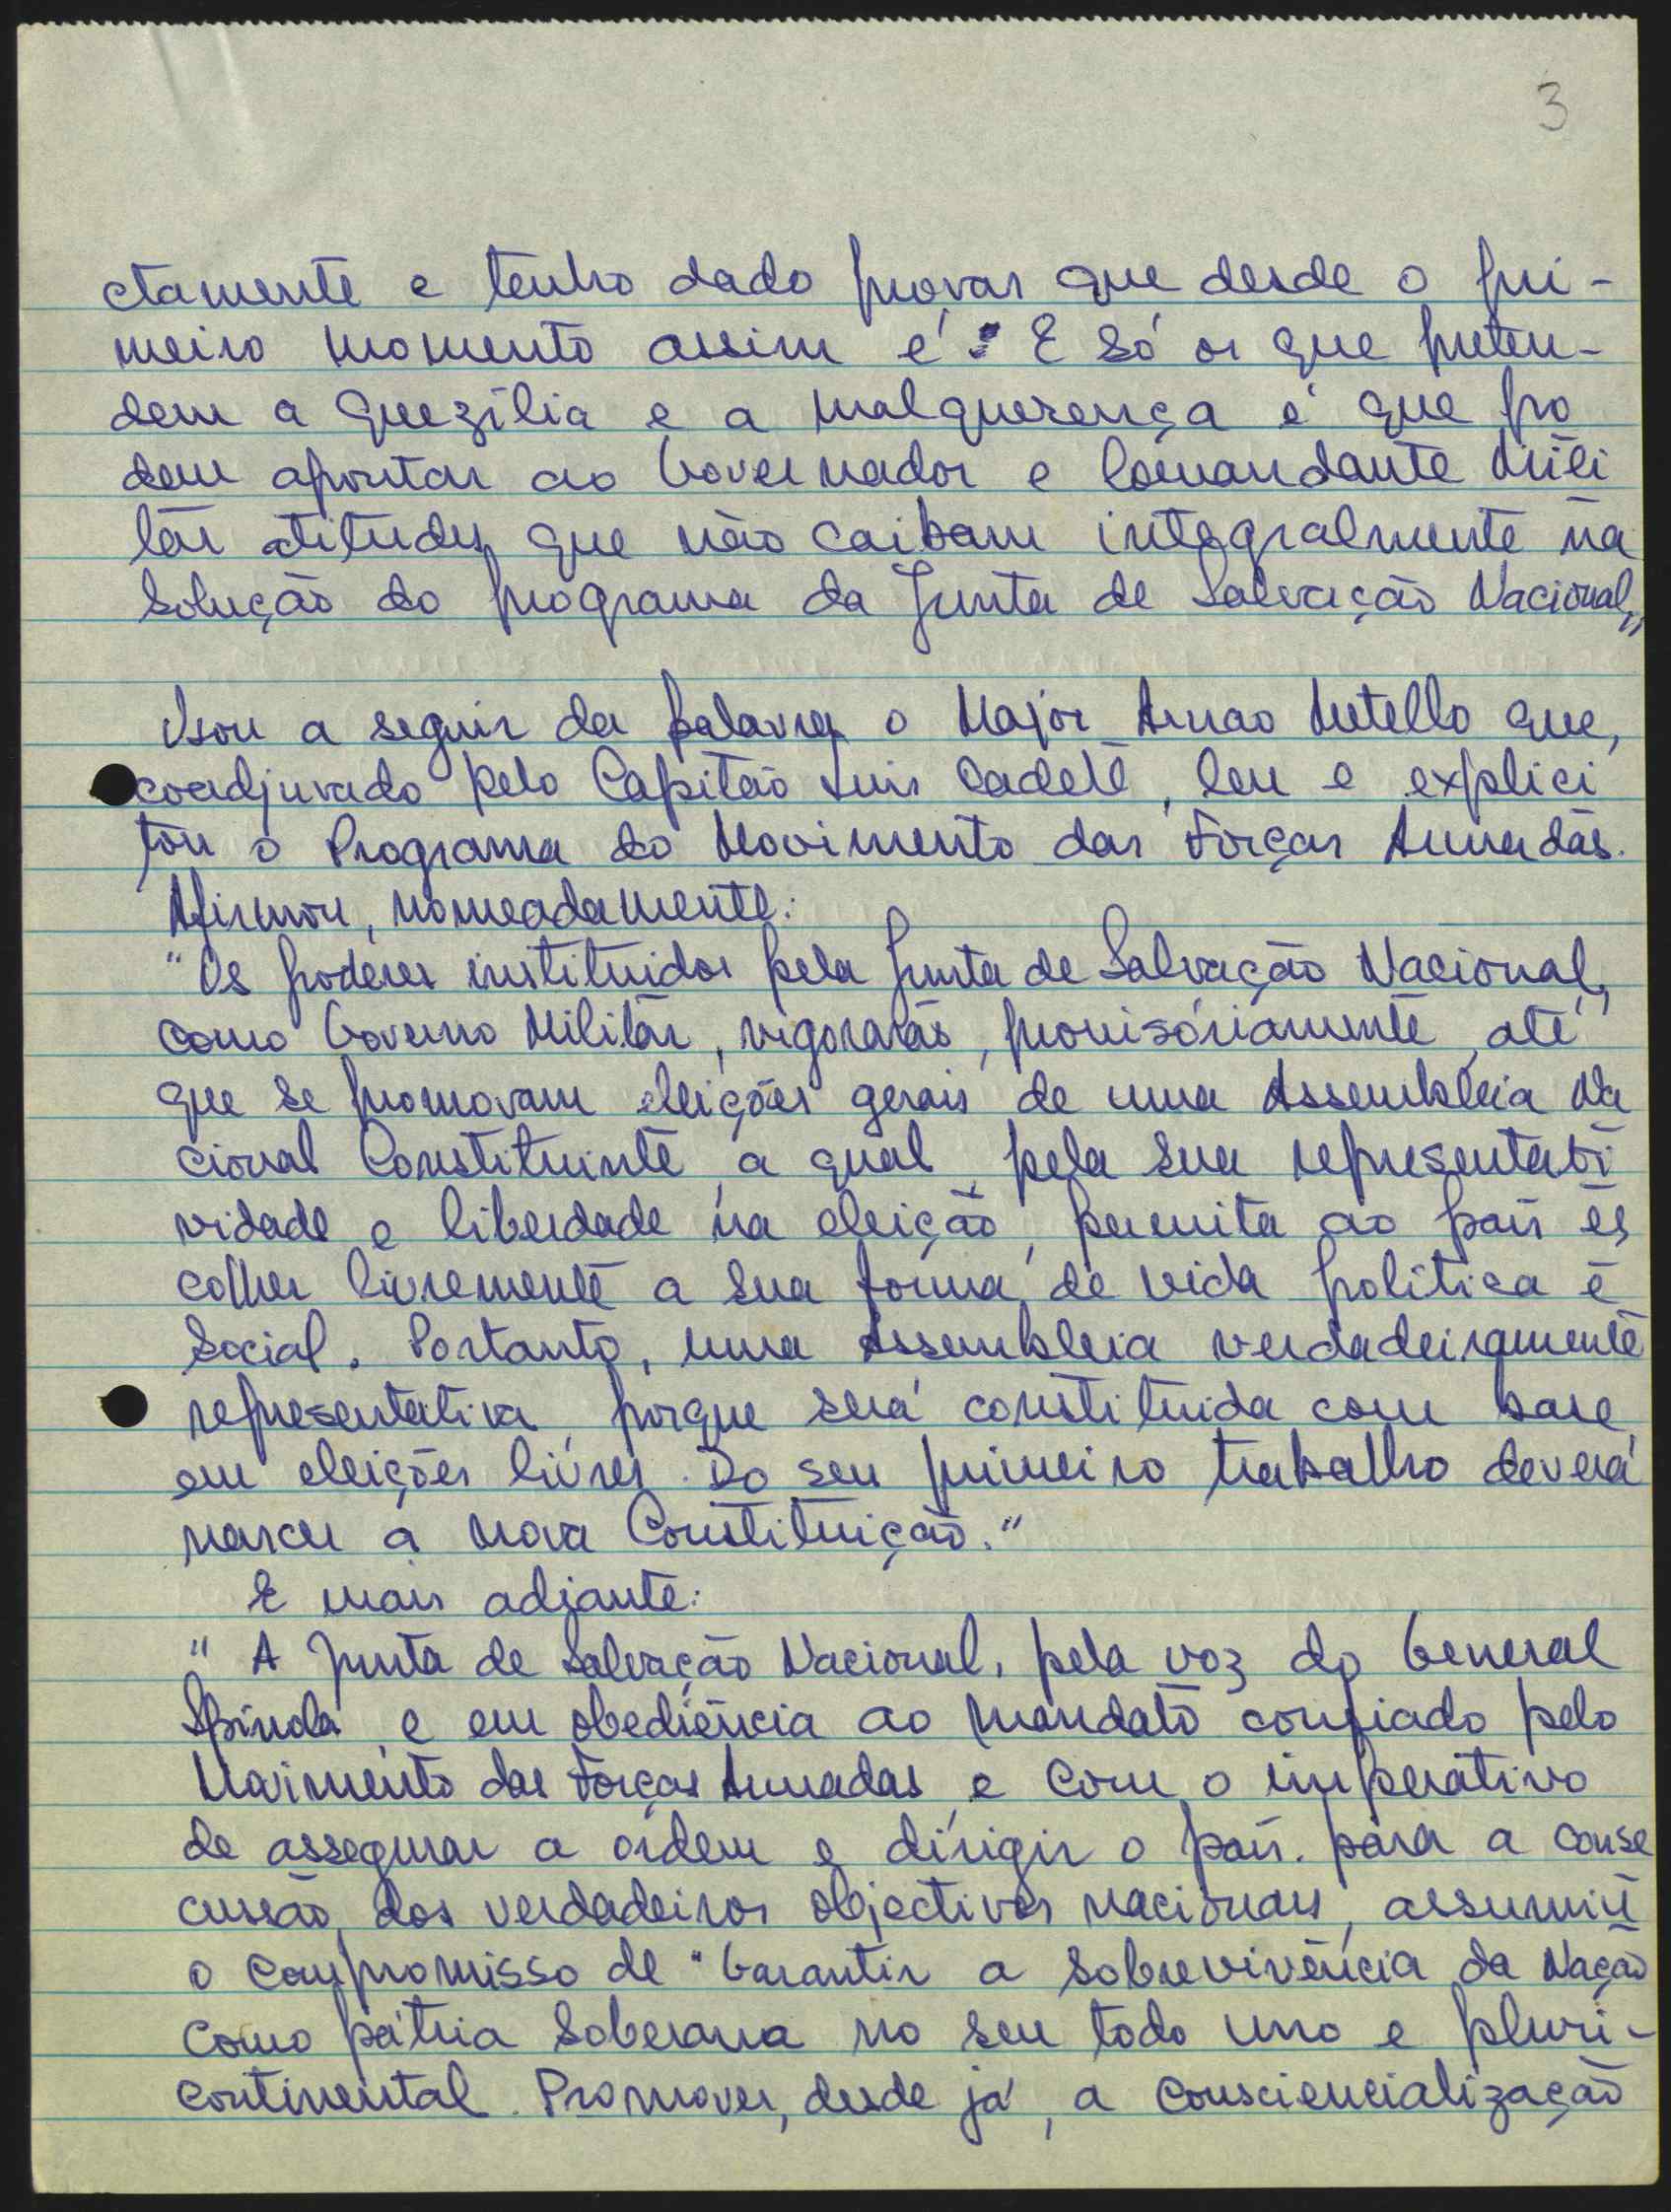 3
ctamente e tenho dado provas que desde o pri-
meiro momento assim é. E só os que preten-
dem a quezília e a malquerença é que po
dem apontar ao Governador e Comandante Mili
tar atitudes que não caibam integralmente na
solução do programa da Junta de Salvação Nacional,,
Usou a seguir da palavra o Major Arnao Metello que,
coadjuvado pelo Capitão Luis Cadete, leu e explici
tou o Programa do Movimento das Forças Armadas.
Afirmou, nomeadamente:
"Os poderes instituidos pela Junta de Salvação Nacional,
como Governo Militar, vigorarão, provisóriamente, até
que se promovam eleições gerais de uma Assembleia Na
cional Constituinte, a qual, pela sua representati
vidade e liberdade na eleição, permita ao país es
colher livremente a sua forma de vida política e
Social. Portanto, uma Assembleia verdadeiramente
representativa, porque será constituida com base
em eleições livres. Do seu primeiro trabalho deverá
nascer a nova Constituição."
E mais adiante:
" A Junta de Salvação Nacional, pela voz do General
Spínola, e em obediência ao mandato confiado pelo
Movimento das Forças Armadas, e com o imperativo
de assegurar a ordem e dirigir o país para a conse
cussão dos verdadeiros objectivos nacionais, assumiu
o compromisso de "Garantir a sobrevivência da Nação
como pátria Soberana no seu todo uno e pluri-
continental. Promover, desde já, a consciencialização